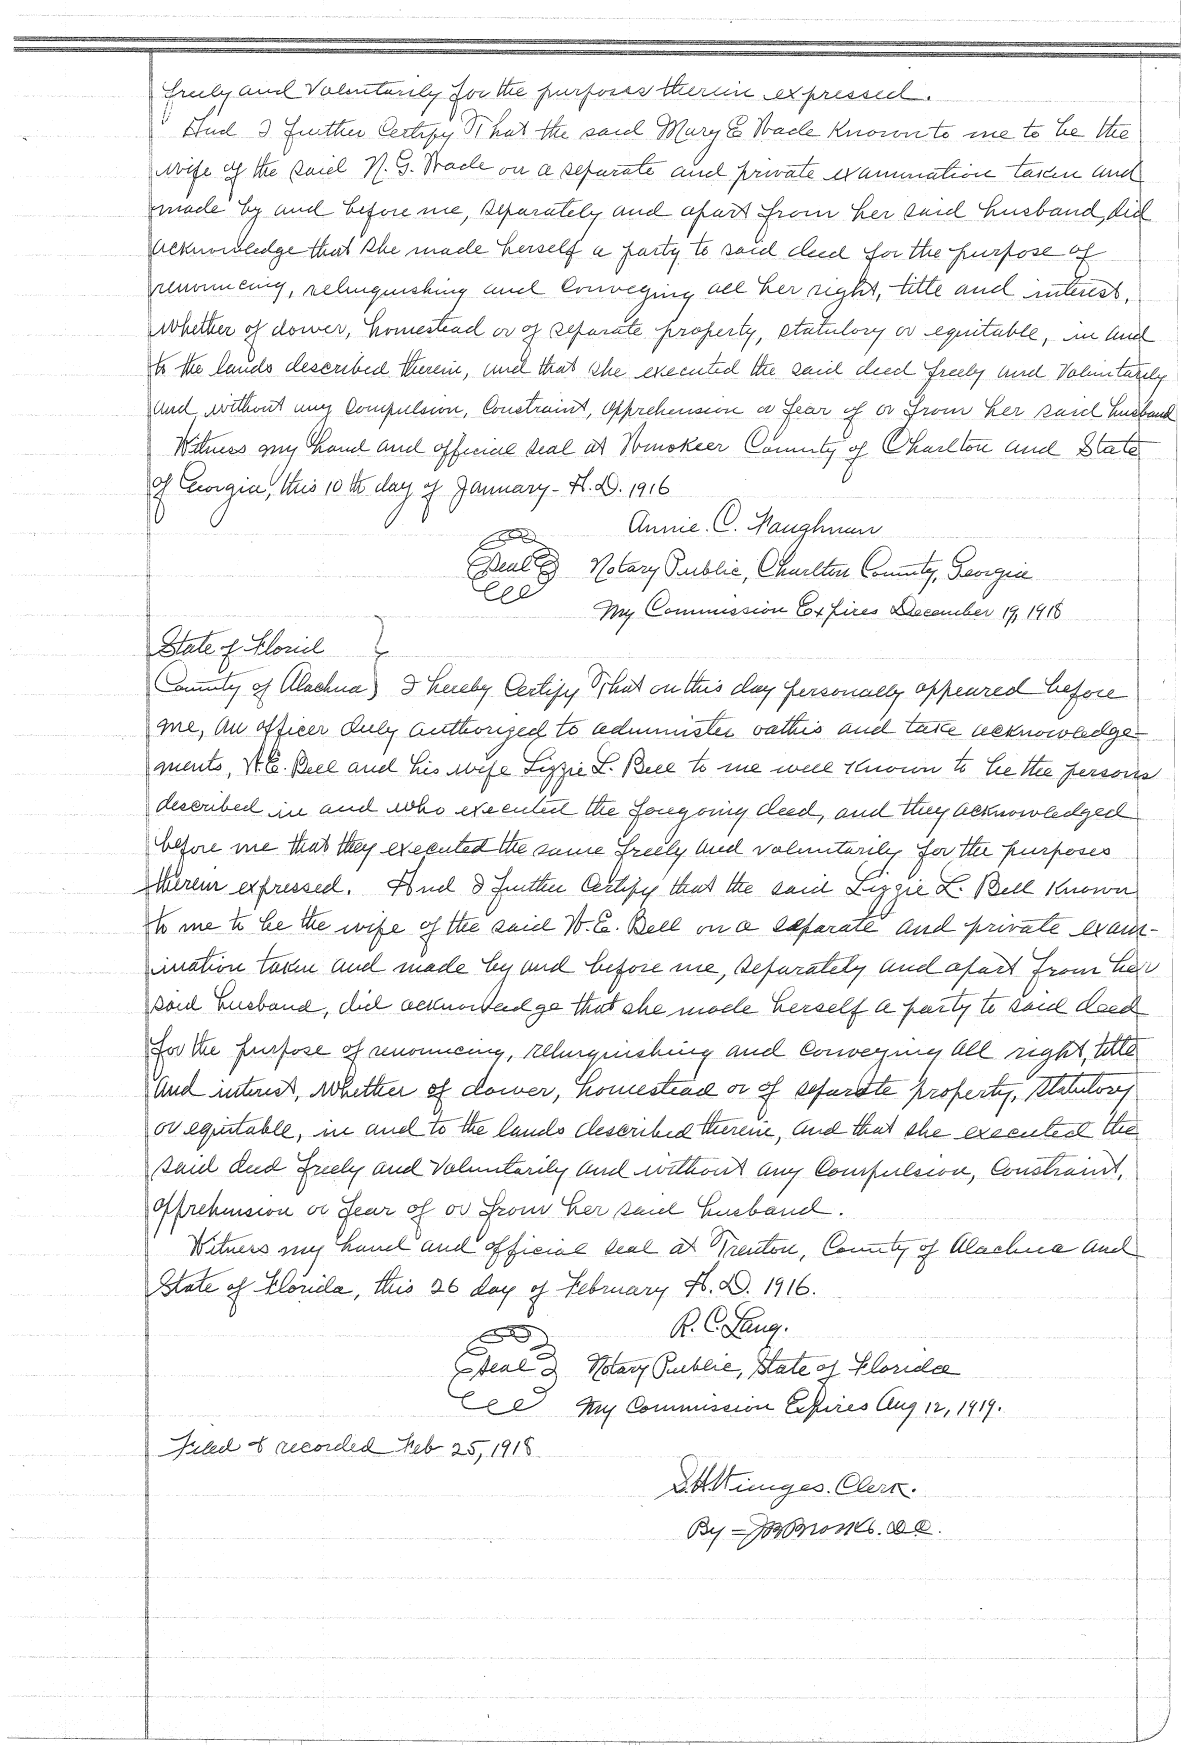 freely and Voluntarily for the purposes therein expressed.
And I further Certify That the said Mary E Wade Known to me to be the
wife of the said N. G. Wade on a separate and private examination taken and
made by and before me, separately and apart from her said husband, did
acknowledge that she made herself a party to said deed for the purpose of
renouncing, relinquishing and Conveying all her right, title and interest,
whether of dower, homestead or of separate property, statutory or equitable, in and
to the lands described therein, and that she executed the said deed freely and Voluntarily
and without any Compulsion, Constraint, apprehension or fear of or from her said husband
Witness my hand and official seal at County of Charlton and State
of Georgia, this 10th day of January - A. D. 1916
Annie. C.
Seal Notary Public, Charlton County, Georgia
My Commission Expires December 19, 1918
State of Florid }
County of Alachua) I hereby Certify That on this day personally appeared before
me, an officer duly authorized to administer oaths and take acknowledge-
ments, W. E. Bell and his wife Lizzie L. Bell to me well Known to be the persons
described in and who executed the foregoing deed, and they acknowledged
before me that they executed the same freely and voluntarily for the purposes
therein expressed. And I further Certify that the said Lizzie L. Bell Known
to me to be the wife of the said W. E. Bell on a separate and private exam-
ination taken and made by and before me, separately and apart from her
said husband, did acknowledge that she made herself a party to said deed
for the purpose of renouncing, relinquishing and Conveying all right, title
and interest, whether of dower, homestead or of separate property, statutory
or equitable, in and to the lands described therein, and that she executed the
said deed freely and Voluntarily and without any Compulsion, Constraint,
apprehension or fear of or from her said husband.
Witness my hand and official seal at Trenton, County of Alachua and
State of Florida, this 26 day of February A. D. 1916.
R. C. Lang.
Seal Notary Public, State of Florida
My Commission Expires Aug 12, 1919.
Filed & recorded Feb 25, 1918
S. H. Wienges. Clerk.
By = D.C.